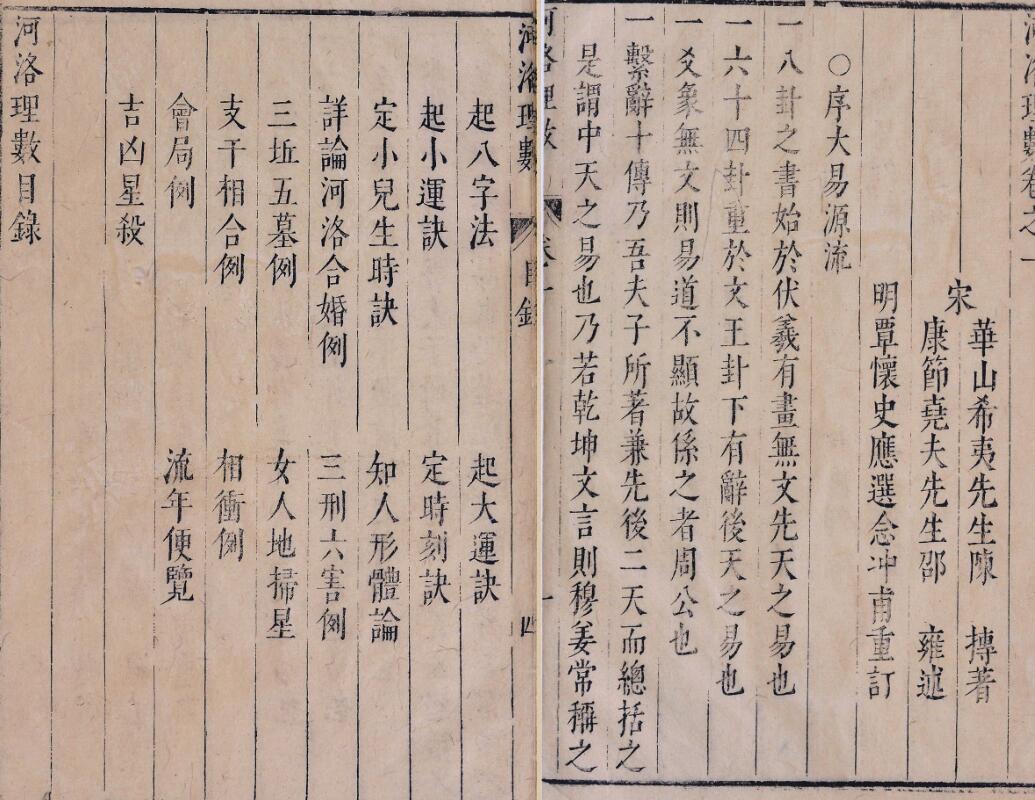 河洛理數卷之一
宋
華山希夷先生陳 摶著
康節堯夫先生邵 雍述
明覃懷史應選念冲甫重訂
○序大易源流
一八卦之書始於伏羲有畫無文先天之易也
一六十四卦重於文王卦下有辭後天之易也
一爻象無文則易道不顯故係之者周公也
一繫辭十傳乃吾夫子所著兼先後二天而總括之
是謂中天之易也乃若乾坤文言則穆姜常稱之
河洛理數 卷一 一
河洛理數 目錄 四
起八字法 起大運訣
起小運訣 定時刻訣
定小兒生時訣 知人形體論
詳論河洛合婚例 三刑六害例
三坵五墓例 女人地掃星
支干相合例 相衝例
會局例 流年便覽
吉凶星殺
河洛理數目錄